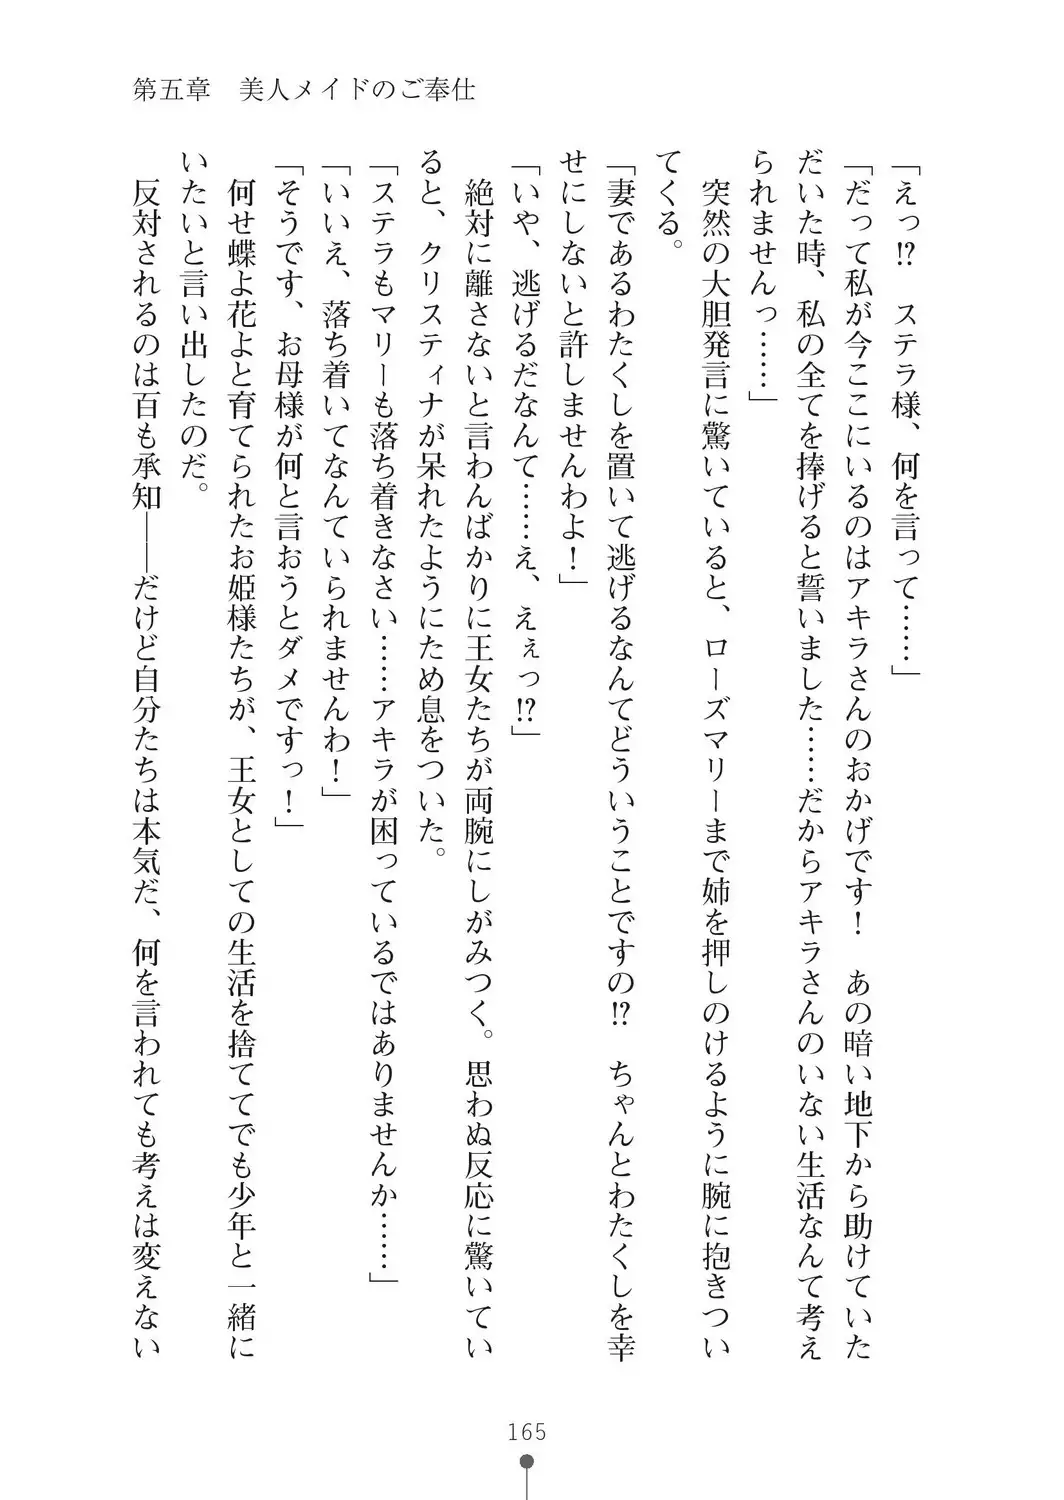 第五章　美人メイドのご奉仕
「えっ!?　ステラ様、何を言って……」
「だって私が今ここにいるのはアキラさんのおかげです！　あの暗い地下から助けていた
だいた時、私の全てを捧げると誓いました……だからアキラさんのいない生活なんて考え
られませんっ……」
　突然の大胆発言に驚いていると、ローズマリーまで姉を押しのけるように腕に抱きつい
てくる。
「妻であるわたくしを置いて逃げるなんてどういうことですの!?　ちゃんとわたくしを幸
せにしないと許しませんわよ！」
「いや、逃げるだなんて……え、えぇっ!?」
　絶対に離さないと言わんばかりに王女たちが両腕にしがみつく。思わぬ反応に驚いてい
ると、クリスティナが呆れたようにため息をついた。
「ステラもマリーも落ち着きなさい……アキラが困っているではありませんか……」
「いいえ、落ち着いてなんていられませんわ！」
「そうです、お母様が何と言おうとダメですっ！」
　何せ蝶よ花よと育てられたお姫様たちが、王女としての生活を捨ててでも少年と一緒に
いたいと言い出したのだ。
　反対されるのは百も承知――だけど自分たちは本気だ、何を言われても考えは変えない
165